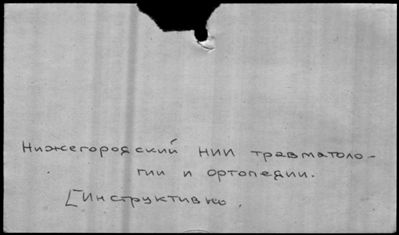 Нижегородский НИИ травматоло-
гии и ортопедии.
[Инструктивно.